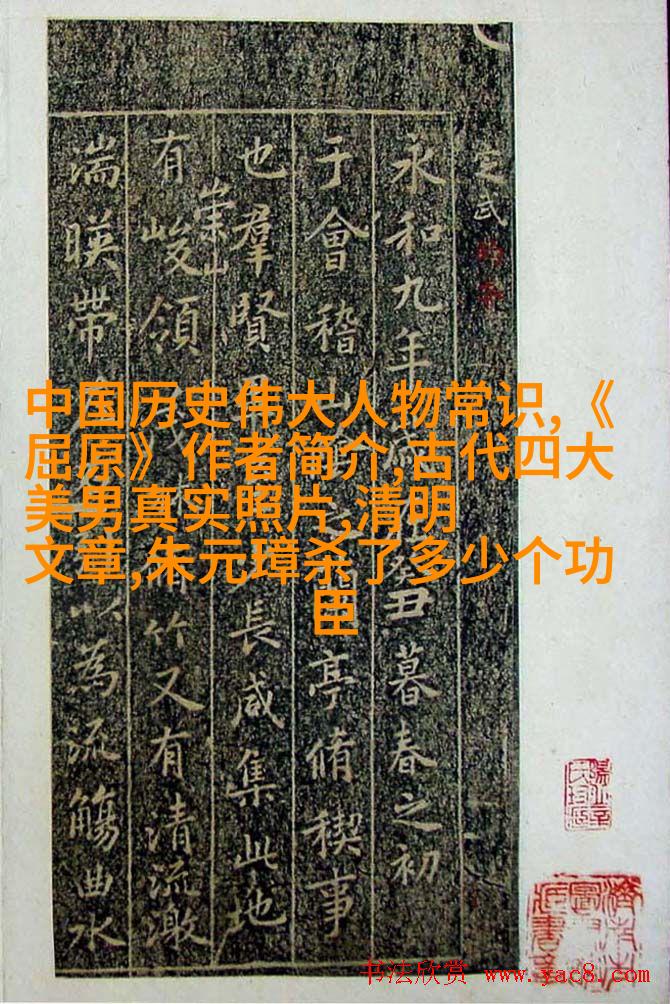 中国历史伟大人物常识,《
屈原》作者简介,古代四大
美男真实照片,清明
文章,朱元璋杀了多少个功
臣
定武
永和九年癸丑暮春之初
于會稽山亭脩稧事
也羣賢長咸集此地
有崇山峻領竹又有清流激
湍暎帶以為流觴曲水
书法欣赏 www.yac8.com